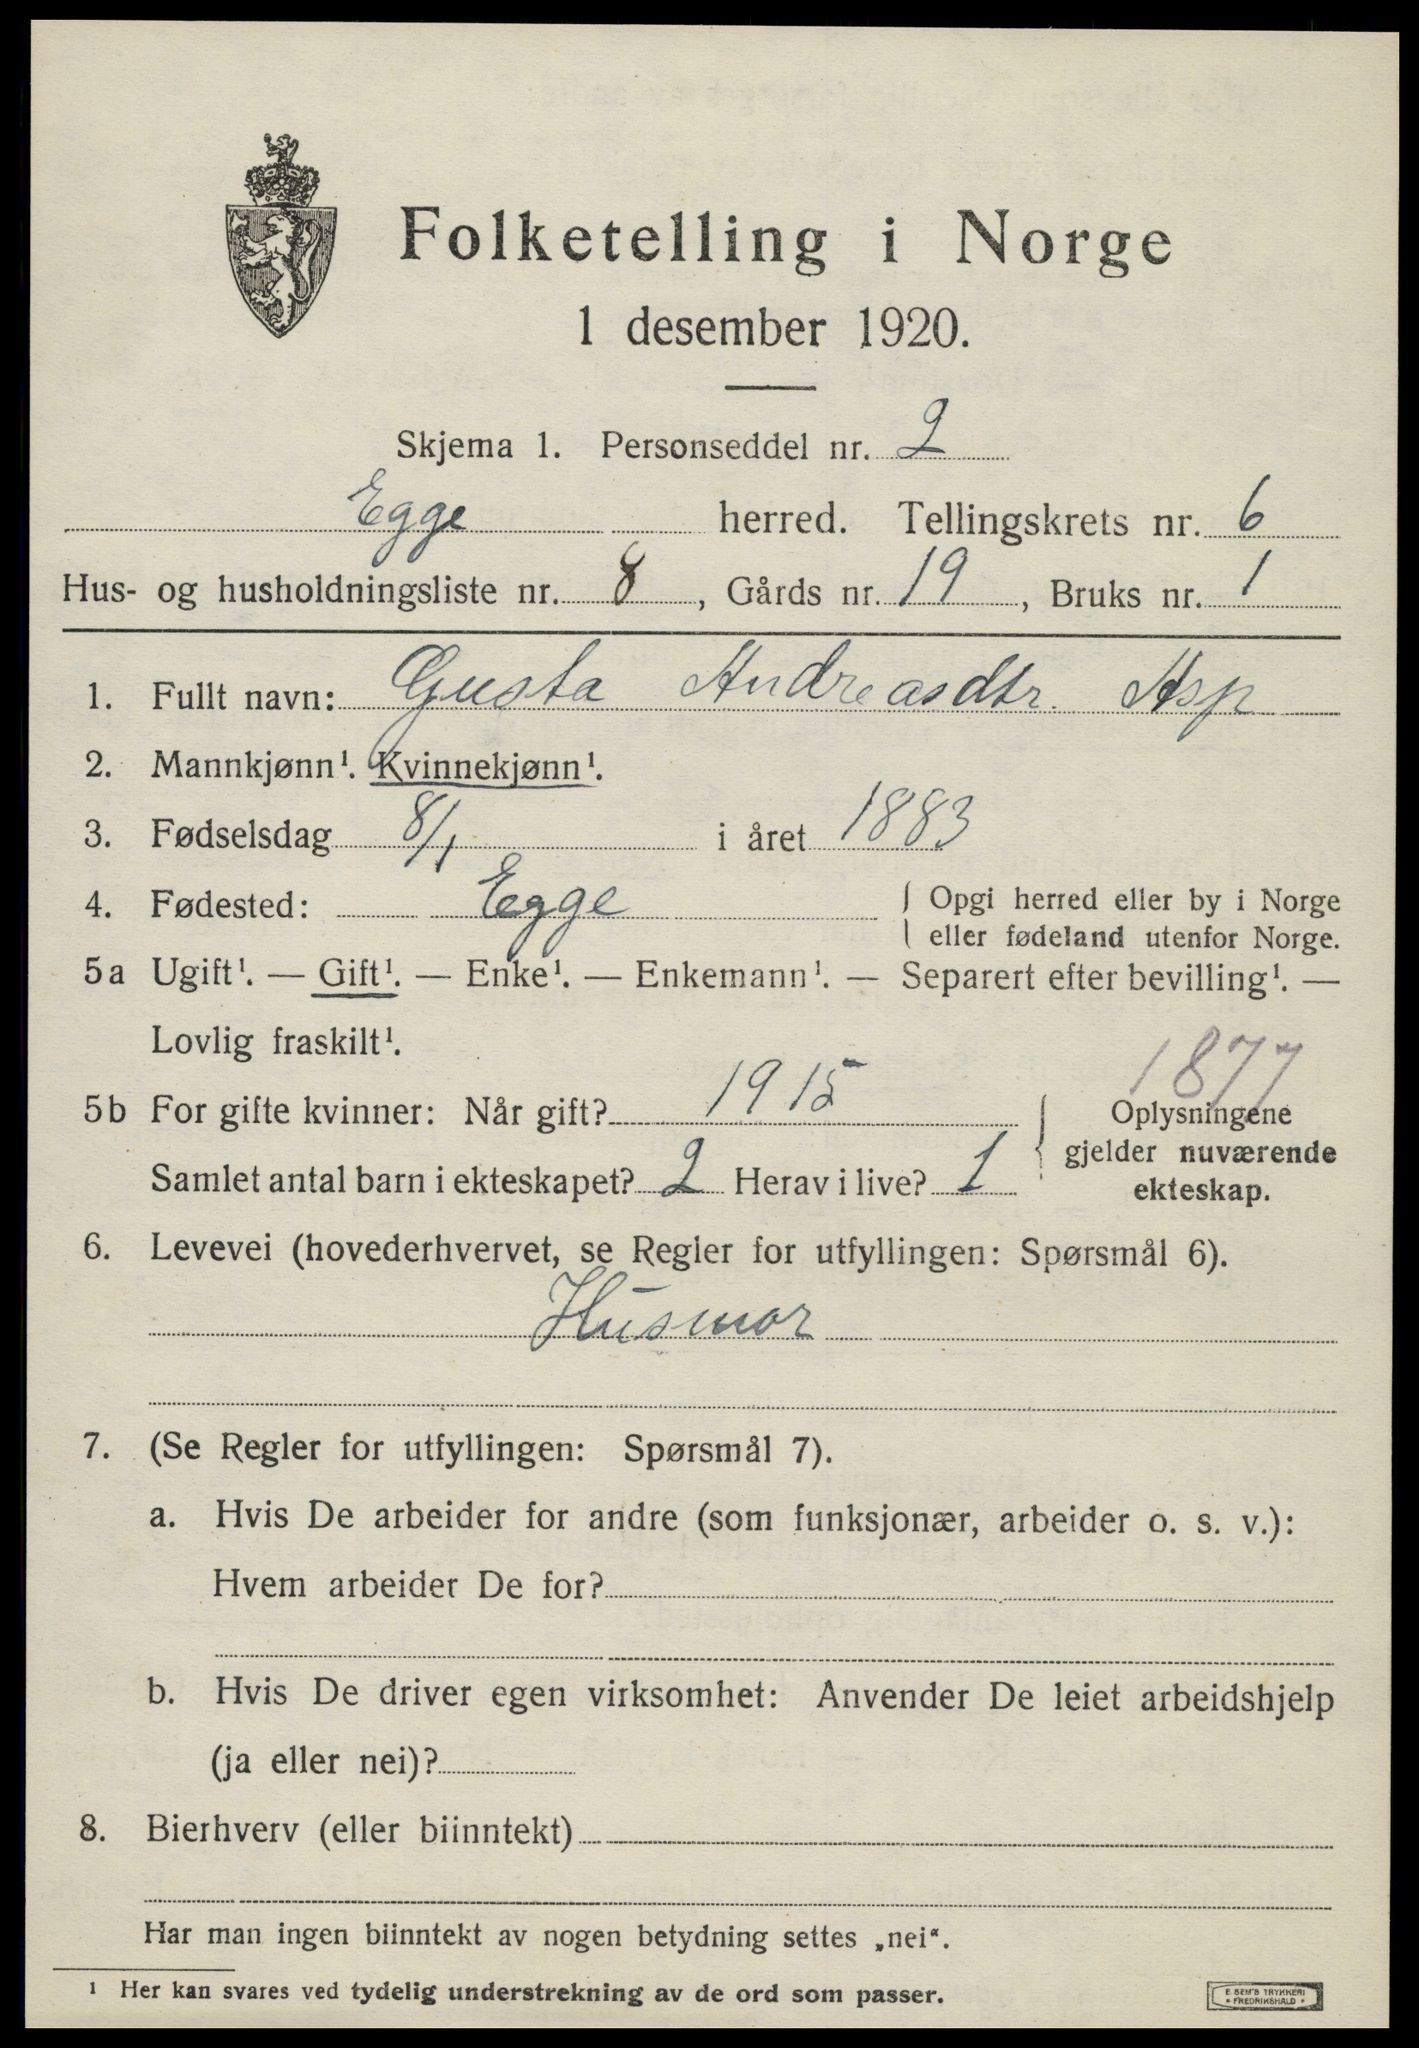 Folketelling i Norge
1 desember 1920.
Skjema 1. Personseddel nr. 2
Egge herred. Tellingskrets nr. 6
Hus- og husholdningsliste nr. 8, Gårds nr. 19, Bruks nr. 1
1. Fullt navn: Gusta Andreasdtr. Asp
2. Mannkjønn¹. Kvinnekjønn¹.
3. Fødselsdag 8/1 i året 1883
4. Fødested: Egge { Opgi herred eller by i Norge
eller fødeland utenfor Norge.
5a Ugift¹. — Gift¹. — Enke¹. — Enkemann¹. — Separert efter bevilling¹. —
Lovlig fraskilt¹.
1877
5b For gifte kvinner: Når gift? 1915
Samlet antal barn i ekteskapet? 2 Herav i live? 1
Oplysningene
gjelder nuværende
ekteskap.
6. Levevei (hovederhvervet, se Regler for utfyllingen: Spørsmål 6).
Husmor
7. (Se Regler for utfyllingen: Spørsmål 7).
a. Hvis De arbeider for andre (som funksjonær, arbeider o. s. v.):
Hvem arbeider De for?
b. Hvis De driver egen virksomhet: Anvender De leiet arbeidshjelp
(ja eller nei)?
8. Bierhverv (eller biinntekt)
Har man ingen biinntekt av nogen betydning settes „nei“.
¹ Her kan svares ved tydelig understrekning av de ord som passer.
E. SEM'S TRYKKERI
• FREDRIKSHALD •